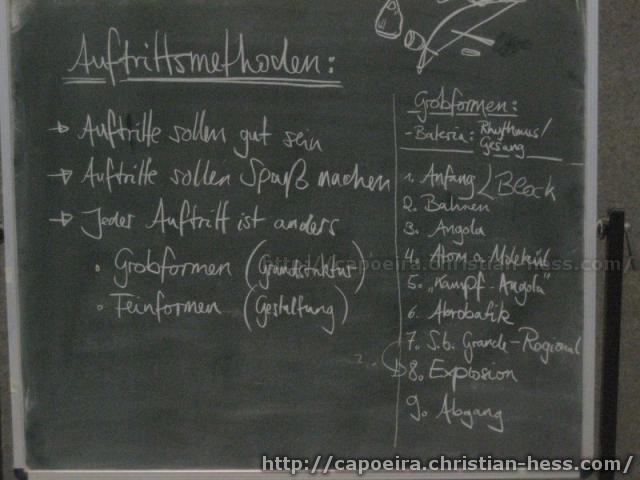 Auftrittsmethoden:
→ Auftritte sollen gut sein
→ Auftritte sollen Spaß machen
→ Jeder Auftritt ist anders
• Grobformen (Grundstruktur)
• Feinformen (Gestaltung)
Grobformen:
- Bateria: Rhythmus/
Gesang
1. Anfang / Block
2. Bahnen
3. Angola
4. Atom a. Molekül
5. "Kampf-Angola"
6. Akrobatik
7. S.b. Grande-Regional
8. Explosion
9. Abgang
http://capoeira.christian-hess.com/
http://capoeira.christian-hess.com/